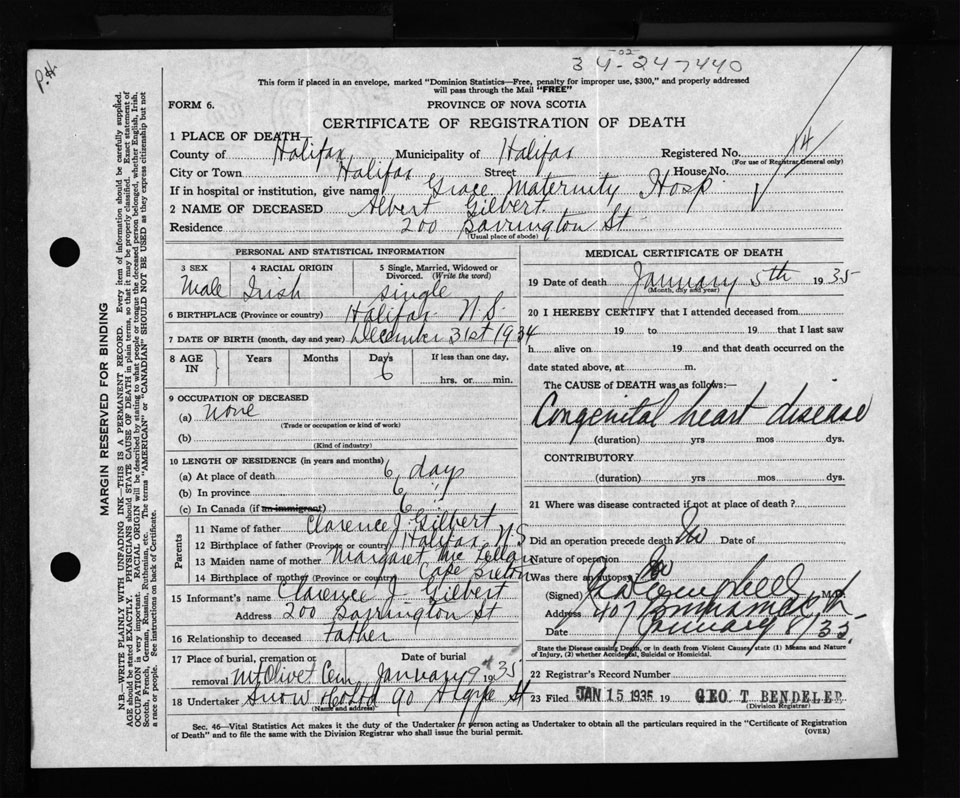 P.H.
34-02-247440
This form if placed in an envelope, marked "Dominion Statistics—Free, penalty for improper use, $300," and properly addressed
will pass through the Mail "FREE"
FORM 6.
PROVINCE OF NOVA SCOTIA
CERTIFICATE OF REGISTRATION OF DEATH
1 PLACE OF DEATH—
County of Halifax Municipality of Halifax Registered No. 14
(For use of Registrar General only)
City or Town Halifax Street House No.
If in hospital or institution, give name Grace Maternity Hosp
2 NAME OF DECEASED Albert Gilbert
Residence 200 Barrington St
(Usual place of abode)
PERSONAL AND STATISTICAL INFORMATION
3 SEX Male
4 RACIAL ORIGIN Irish
5 Single, Married, Widowed or Divorced. (Write the word) Single
6 BIRTHPLACE (Province or country) Halifax N S
7 DATE OF BIRTH (month, day and year) December 31st 1934
8 AGE IN Years Months Days 6 If less than one day, hrs. or min.
9 OCCUPATION OF DECEASED
(a) none
(Trade or occupation or kind of work)
(b)
(Kind of industry)
10 LENGTH OF RESIDENCE (in years and months)
(a) At place of death 6 days
(b) In province 6 "
(c) In Canada (if an immigrant) 6 "
Parents
11 Name of father Clarence J Gilbert
12 Birthplace of father (Province or country) Halifax N S
13 Maiden name of mother Margaret McLellan
14 Birthplace of mother (Province or country) Cape Breton
15 Informant's name Clarence J. Gilbert
Address 200 Barrington St
16 Relationship to deceased Father
17 Place of burial, cremation or removal Mt Olivet Cem
Date of burial January 9th 1935
18 Undertaker Snow & Co Ltd 90 Argyle St
(Name and address)
MEDICAL CERTIFICATE OF DEATH
19 Date of death January 5th 1935
(Month, day and year)
20 I HEREBY CERTIFY that I attended deceased from
19 to 19 that I last saw
h alive on 19 and that death occurred on the
date stated above, at m.
The CAUSE of DEATH was as follows:—
Congenital heart disease
(duration) yrs mos dys.
CONTRIBUTORY
(duration) yrs mos dys.
21 Where was disease contracted if not at place of death?
Did an operation precede death No Date of
Nature of operation
Was there an autopsy No
(Signed) Campbell M.D.
Address 407
Date January 8/35.
State the Disease causing Death, or in death from Violent Causes, state (1) Means and Nature
of Injury, (2) whether Accidental, Suicidal or Homicidal.
22 Registrar's Record Number
23 Filed JAN 15 1935 19 GEO. T BENDELER
(Division Registrar)
Sec. 46—Vital Statistics Act makes it the duty of the Undertaker or person acting as Undertaker to obtain all the particulars required in the "Certificate of Registration
of Death" and to file the same with the Division Registrar who shall issue the burial permit.
(OVER)
MARGIN RESERVED FOR BINDING
N.B.—WRITE PLAINLY WITH UNFADING INK—THIS IS A PERMANENT RECORD. Every item of information should be carefully supplied.
AGE should be stated EXACTLY. PHYSICIANS should STATE CAUSE OF DEATH in plain terms, so that it may be properly classified. Exact statement of
OCCUPATION is very important. RACIAL ORIGIN will be described by stating to what people or tongue the deceased person belonged, whether English, Irish,
Scotch, French, German, Russian, Ruthenian, etc. The terms "AMERICAN" or "CANADIAN" SHOULD NOT BE USED as they express citizenship but not
a race or people. See instructions on back of Certificate.